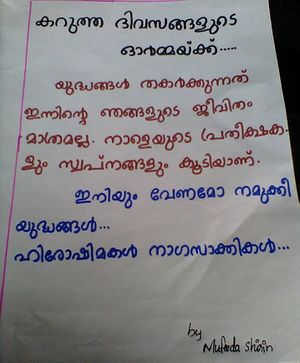 കറുത്ത ദിവസങ്ങളുടെ
ഓർമ്മയ്ക്ക്.....
യുദ്ധങ്ങൾ തകർക്കുന്നത്
ഇന്നിന്റെ ഞങ്ങളുടെ ജീവിതം
മാത്രമല്ല. നാളെയുടെ പ്രതീക്ഷക-
ളും സ്വപ്നങ്ങളും കൂടിയാണ്.
ഇനിയും വേണമോ നമുക്കീ
യുദ്ധങ്ങൾ...
ഹിരോഷിമകൾ നാഗസാക്കികൾ...
by
Mufeeda Shirin